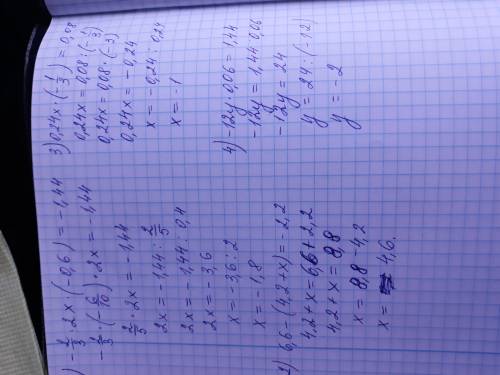 ) -2/3 · 2x · (-0,6) = -1,44
-2/3 · (-6/10) · 2x = -1,44
2/5 · 2x = -1,44
2x = -1,44 : 2/5
2x = -1,44 : 0,4
2x = -3,6
x = -3,6 : 2
x = -1,8
2) 6,6 - (4,2 + x) = -2,2
4,2 + x = 6,6 + 2,2
4,2 + x = 8,8
x = 8,8 - 4,2
x = 4,6.
3) 0,24x · (-1/3) = 0,08
0,24x = 0,08 : (-1/3)
0,24x = 0,08 · (-3)
0,24x = -0,24
x = -0,24 : 0,24
x = -1
4) -12y · 0,06 = 1,44
-12y = 1,44 : 0,06
-12y = 24
y = 24 : (-12)
y = -2